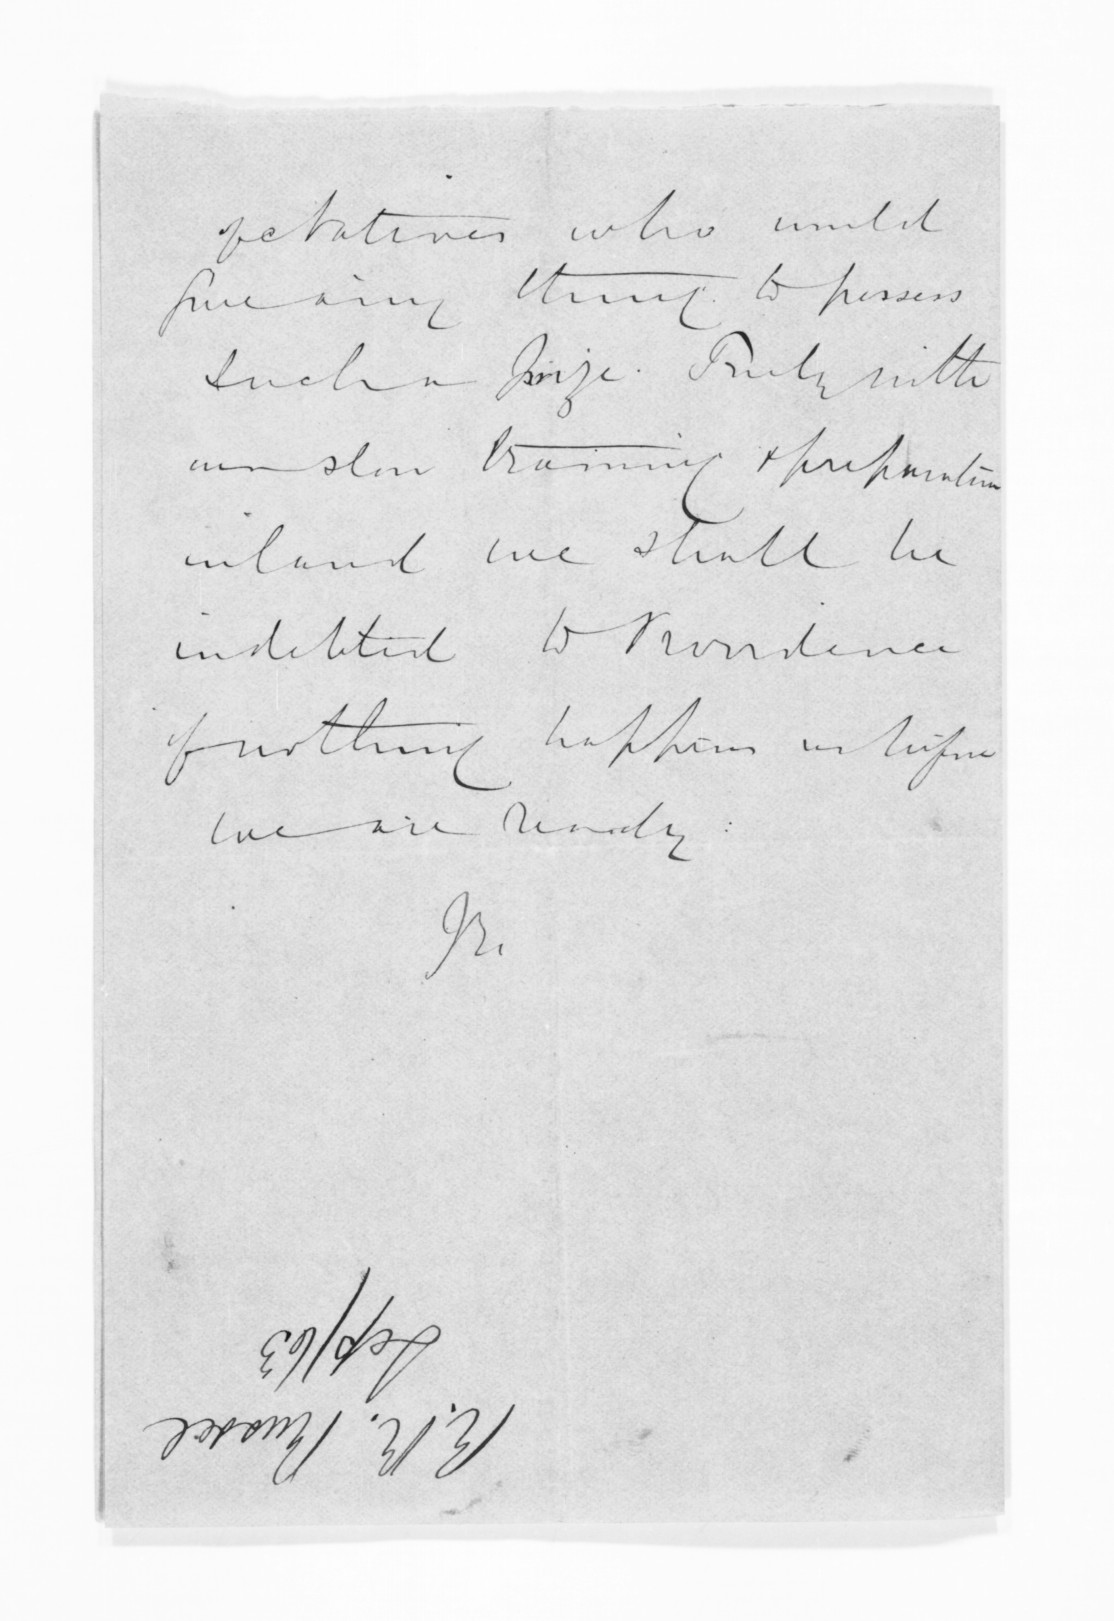 who would
give any thing to possess
such a Prize. Truly with
our slow training & preparation
inland we shall be
indebted to Providence
if nothing happens us before
we are ready.
R. R.
Sep/63